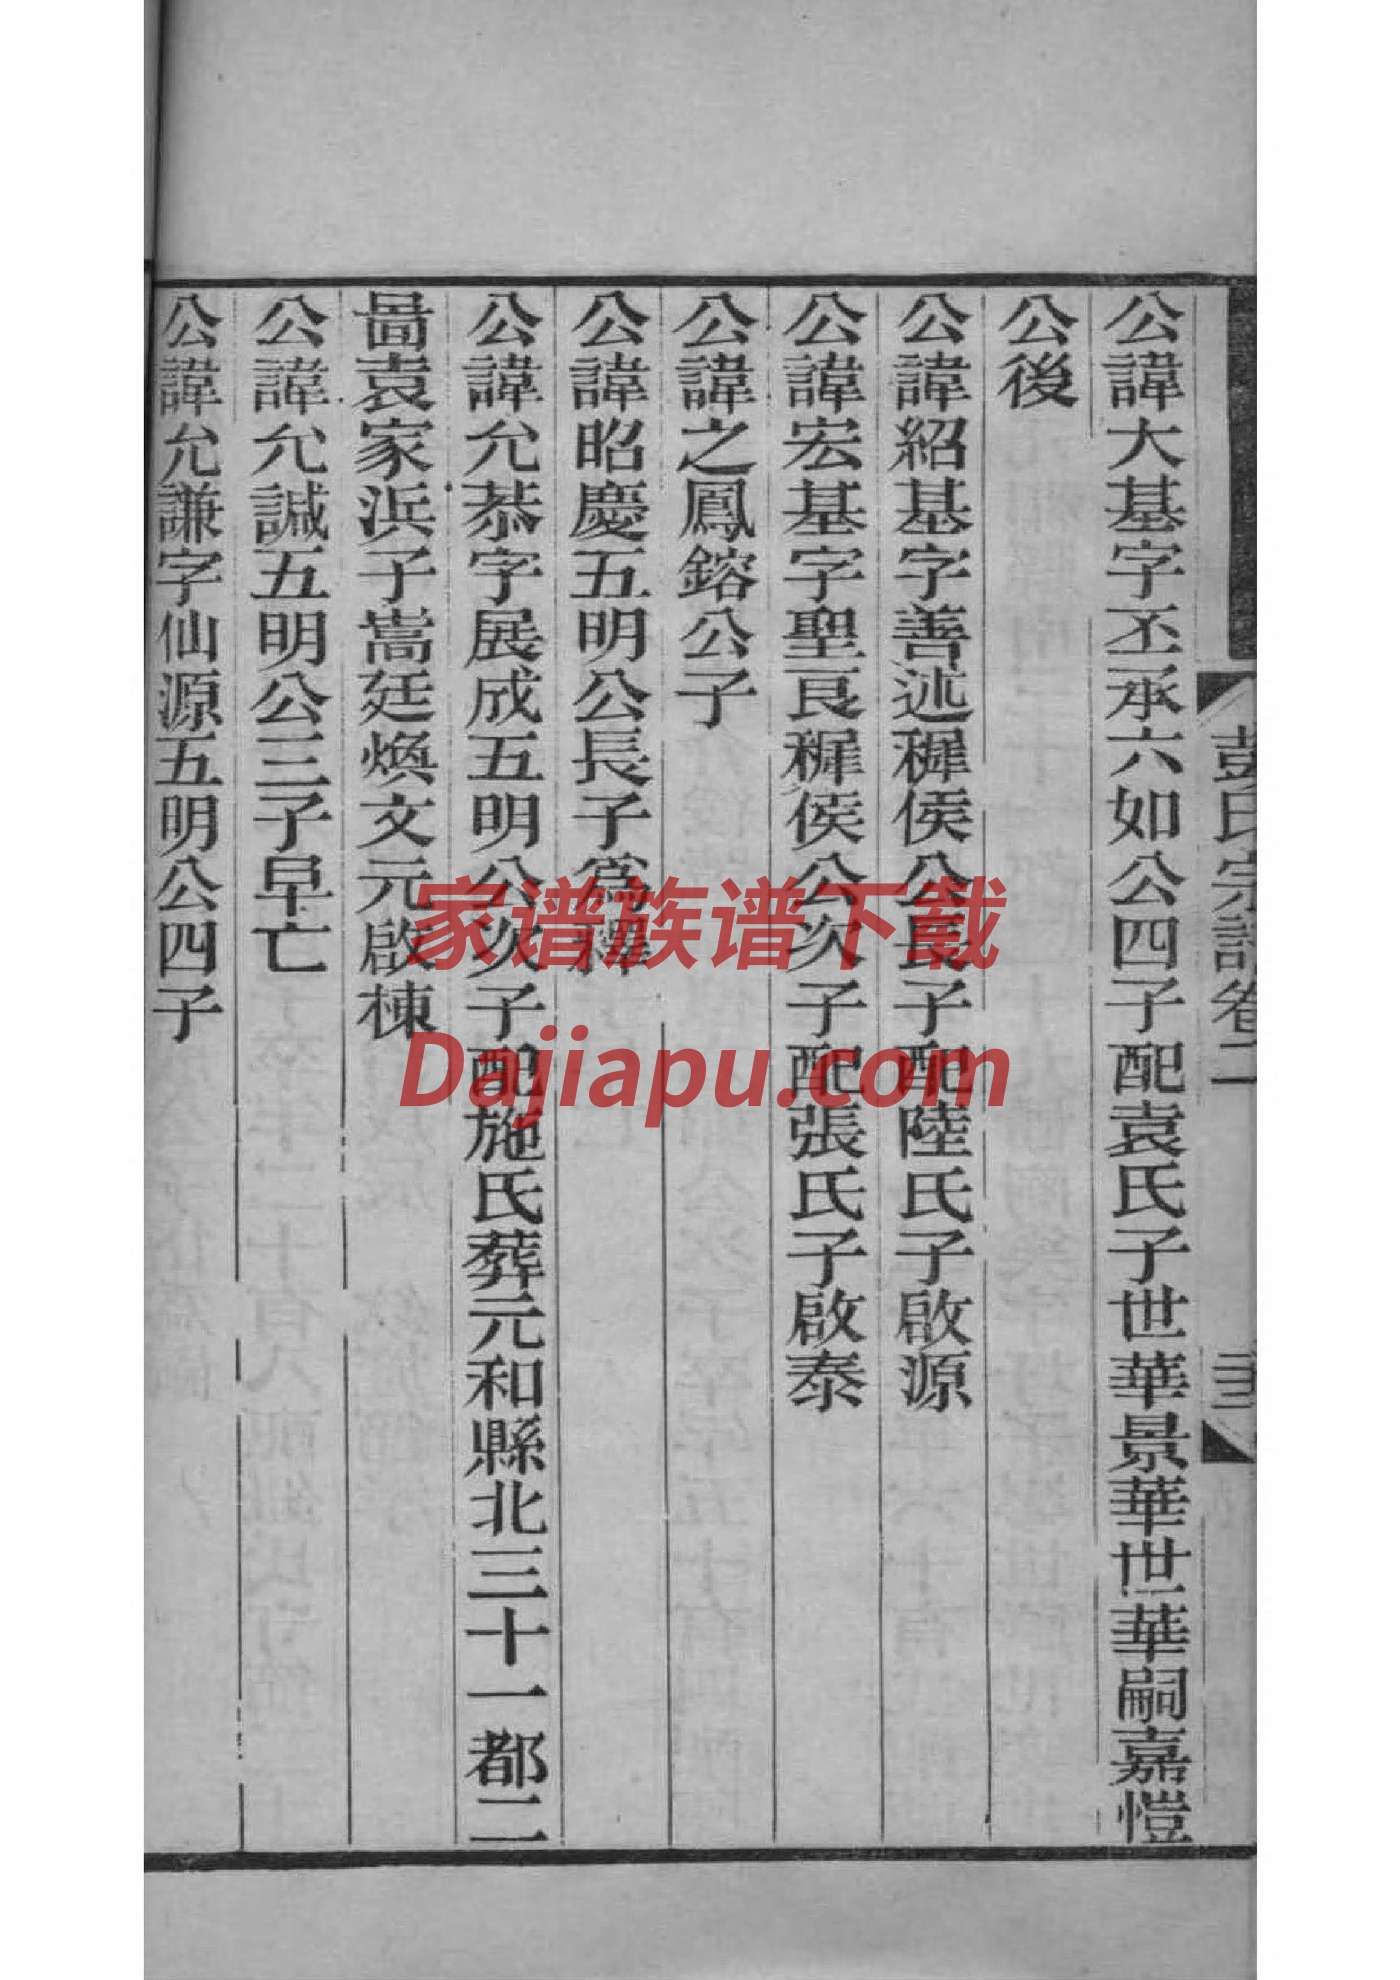 彭氏宗譜卷二
公諱大基字丕承六如公四子配袁氏子世華景華世華嗣嘉愷
公後
公諱紹基字善述穉侯公長子配陸氏子啟源
公諱宏基字聖艮穉侯公次子配張氏子啟泰
公諱之鳳鎔公子
公諱昭慶五明公長子為釋
公諱允恭字展成五明公次子配施氏葬元和縣北三十一都二
啚袁家浜子嵩廷煥文元啟棟
公諱允諴五明公三子早亡
公諱允謙字仙源五明公四子
家谱族谱下载
Dajiapu.com